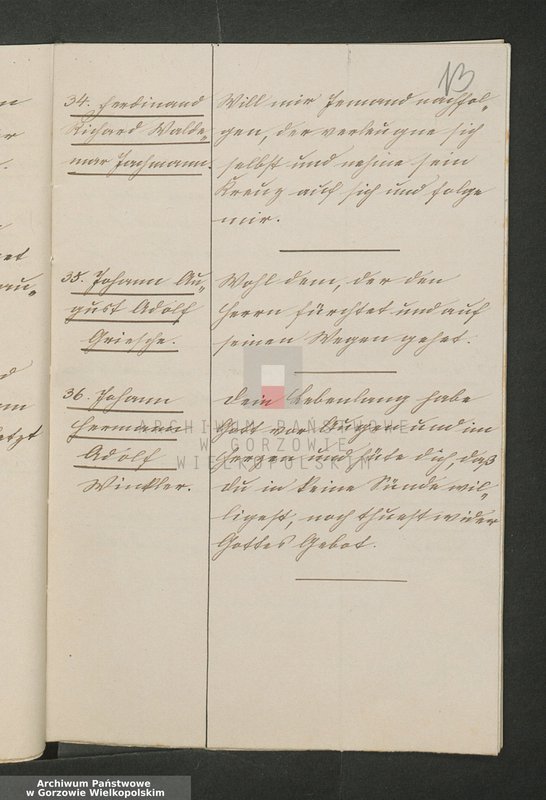 13
34. Ferdinand
Richard Walde-
mar Jachmann.
Will mir Jemand nachfol-
gen, der verleugne sich
selbst und nehme sein
Kreuz auf sich und folge
mir.
35. Johann Au-
gust Adolf
Griesche.
Wohl dem, der den
Herrn fürchtet und auf
seinen Wegen gehet.
36. Johann
Hermann
Adolf
Winkler.
Dein Lebenlang habe
Gott vor Augen und im
Herzen und hüte dich, daß
du in keine Sünde wil-
ligest, noch thuest wider
Gottes Gebot.
ARCHIWUM PAŃSTWOWE
W GORZOWIE
WIELKOPOLSKIM
Archiwum Państwowe
w Gorzowie Wielkopolskim